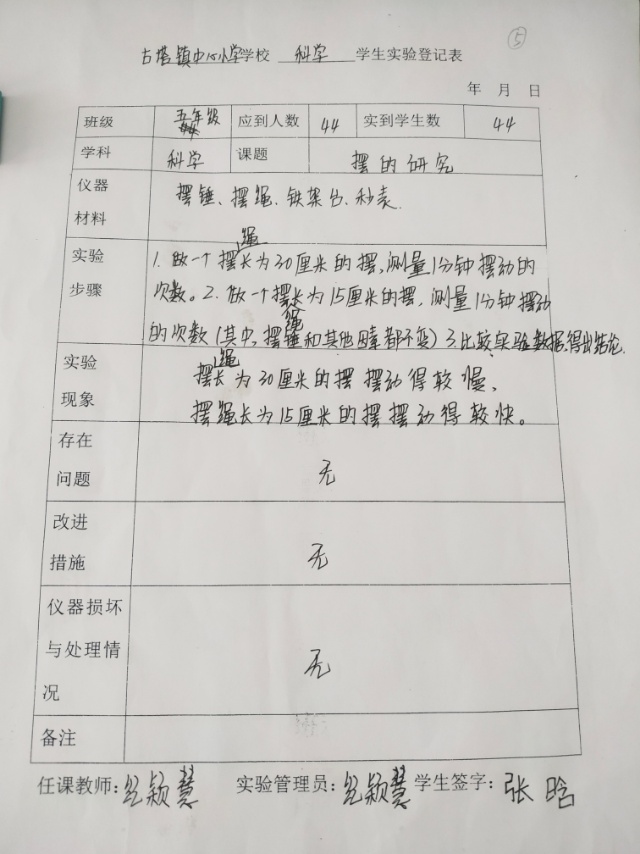 ⑤
古塔镇中心小学学校 科学 学生实验登记表
年 月 日
班级 五年级 应到人数 44 实到学生数 44
学科 科学 课题 摆的研究
仪器材料 摆锤、摆绳、铁架台、秒表
实验步骤 1.做一个摆绳长为30厘米的摆,测量1分钟摆动的
次数。2.做一个摆绳长为15厘米的摆,测量1分钟摆动
的次数(其中,摆锤和其他因素都不变)3.比较实验数据,得出结论.
实验现象 摆绳长为30厘米的摆 摆动得较慢、
摆绳长为15厘米的摆摆动得较快。
存在问题 无
改进措施 无
仪器损坏与处理情况 无
备注
任课教师: 颖慧 实验管理员: 颖慧 学生签字:张晗